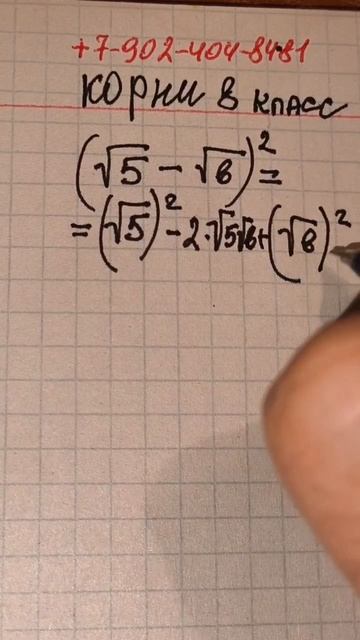 +7-902-404-8481
КОРНИ 8 КЛАСС
(√5 − √6)² =
= (√5)² − 2·√5√6 + (√6)²